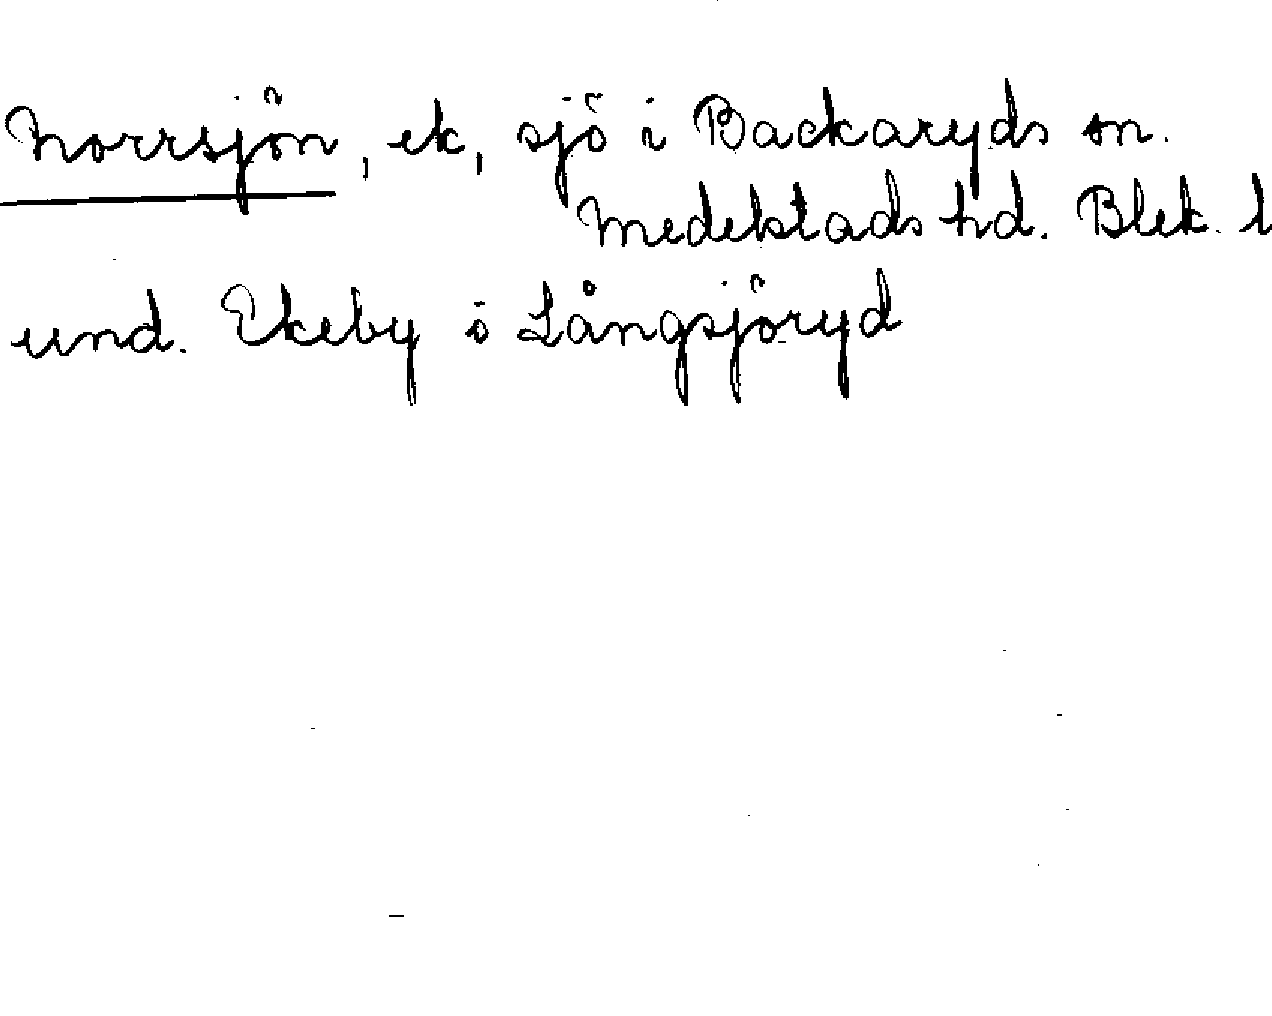 Norrsjön, ek, sjö i Backaryds sn.
Medelstads hd. Blek. l
und. Ekeby o Långsjöryd